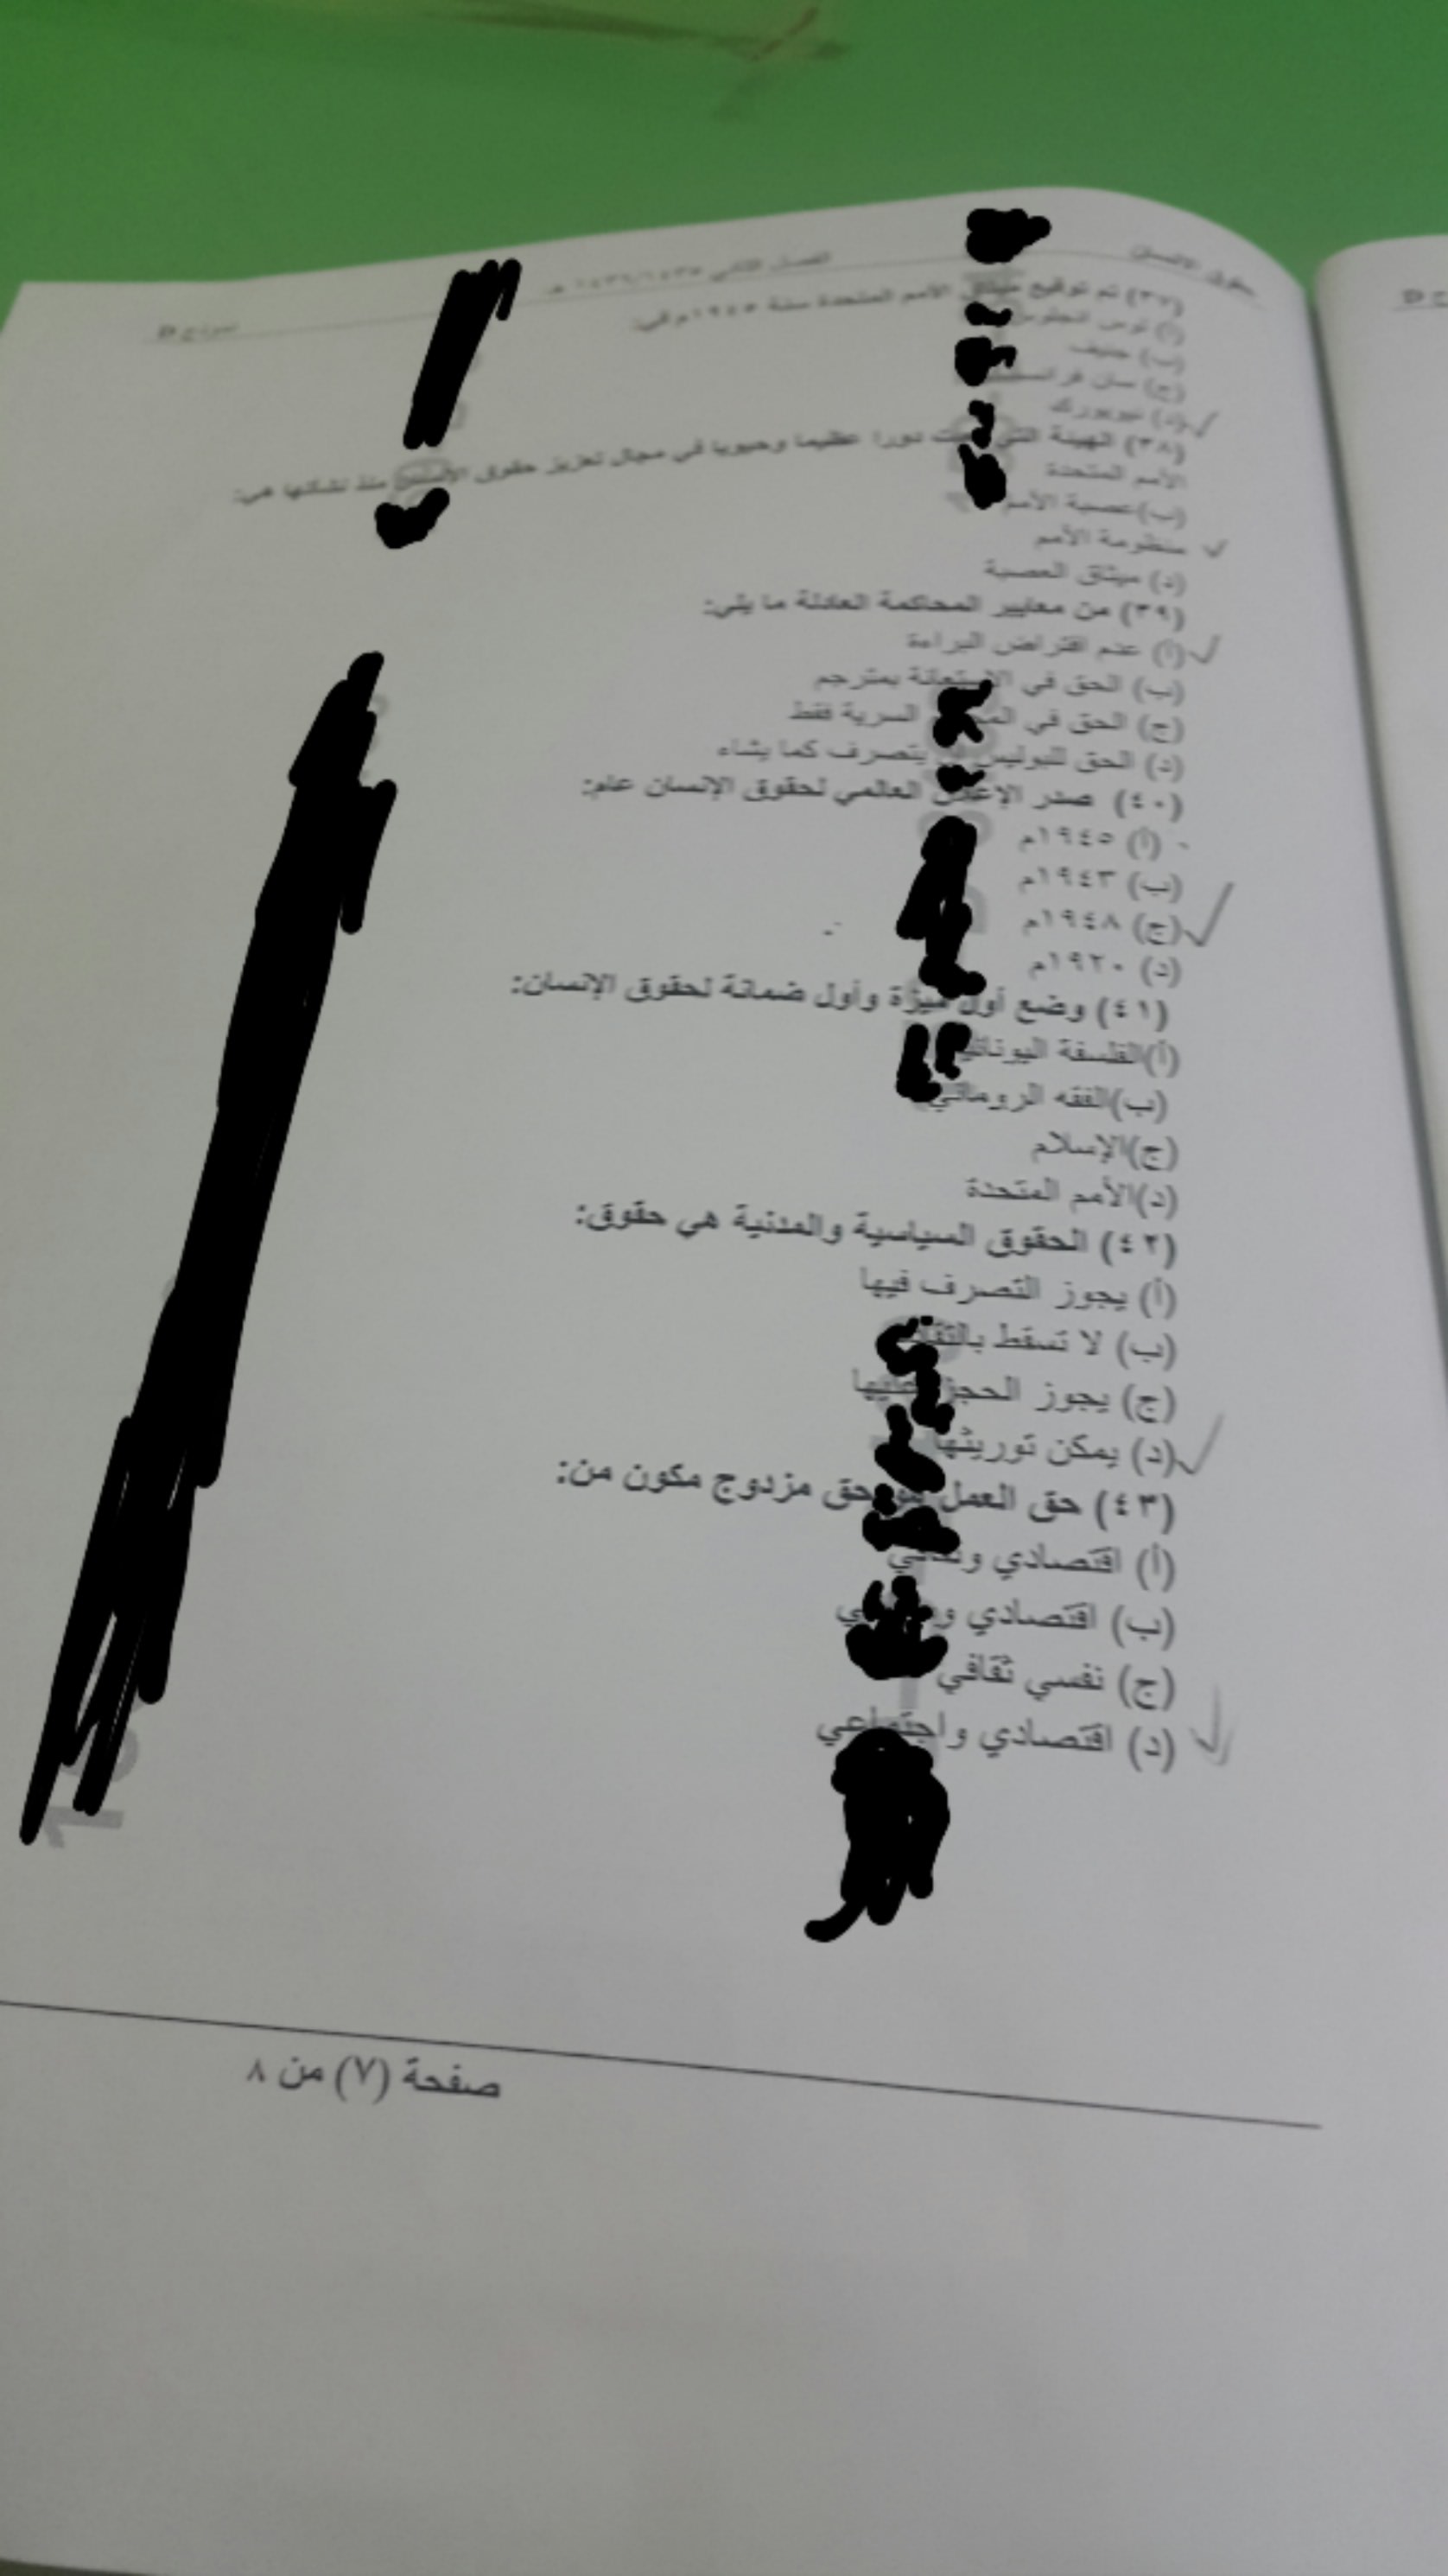 حقوق الإنسان الفصل الثاني ١٤٣٥/١٤٣٦ هـ نموذج D
(٣٧) تم توقيع ميثاق الأمم المتحدة سنة ١٩٤٥م في:
(أ) لوس انجلوس
(ب) جنيف
(ج) سان فرانسيسكو
(د) نيويورك
(٣٨) الهيئة التي دورا عظيما وحيويا في مجال تعزيز حقوق الإنسان منذ نشأتها هي:
الأمم المتحدة
(ب)عصبة الأمم
منظومة الأمم
(د) ميثاق العصبة
(٣٩) من معايير المحاكمة العادلة ما يلي:
(أ) عدم افتراض البراءة
(ب) الحق في الاستعانة بمترجم
(ج) الحق في السرية فقط
(د) الحق للبوليس يتصرف كما يشاء
(٤٠) صدر الإعلان العالمي لحقوق الإنسان عام:
(أ) ١٩٤٥م
(ب) ١٩٤٣م
(ج) ١٩٤٨م
(د) ١٩٢٠م
(٤١) وضع أول ميزة وأول ضمانة لحقوق الإنسان:
(أ)الفلسفة اليونانية
(ب)الفقه الروماني
(ج)الإسلام
(د)الأمم المتحدة
(٤٢) الحقوق السياسية والمدنية هي حقوق:
(أ) يجوز التصرف فيها
(ب) لا تسقط بالتقادم
(ج) يجوز الحجز عليها
(د) يمكن توريثها
(٤٣) حق العمل هو حق مزدوج مكون من:
(أ) اقتصادي وثقافي
(ب) اقتصادي
(ج) نفسي ثقافي
(د) اقتصادي واجتماعي
صفحة (٧) من ٨